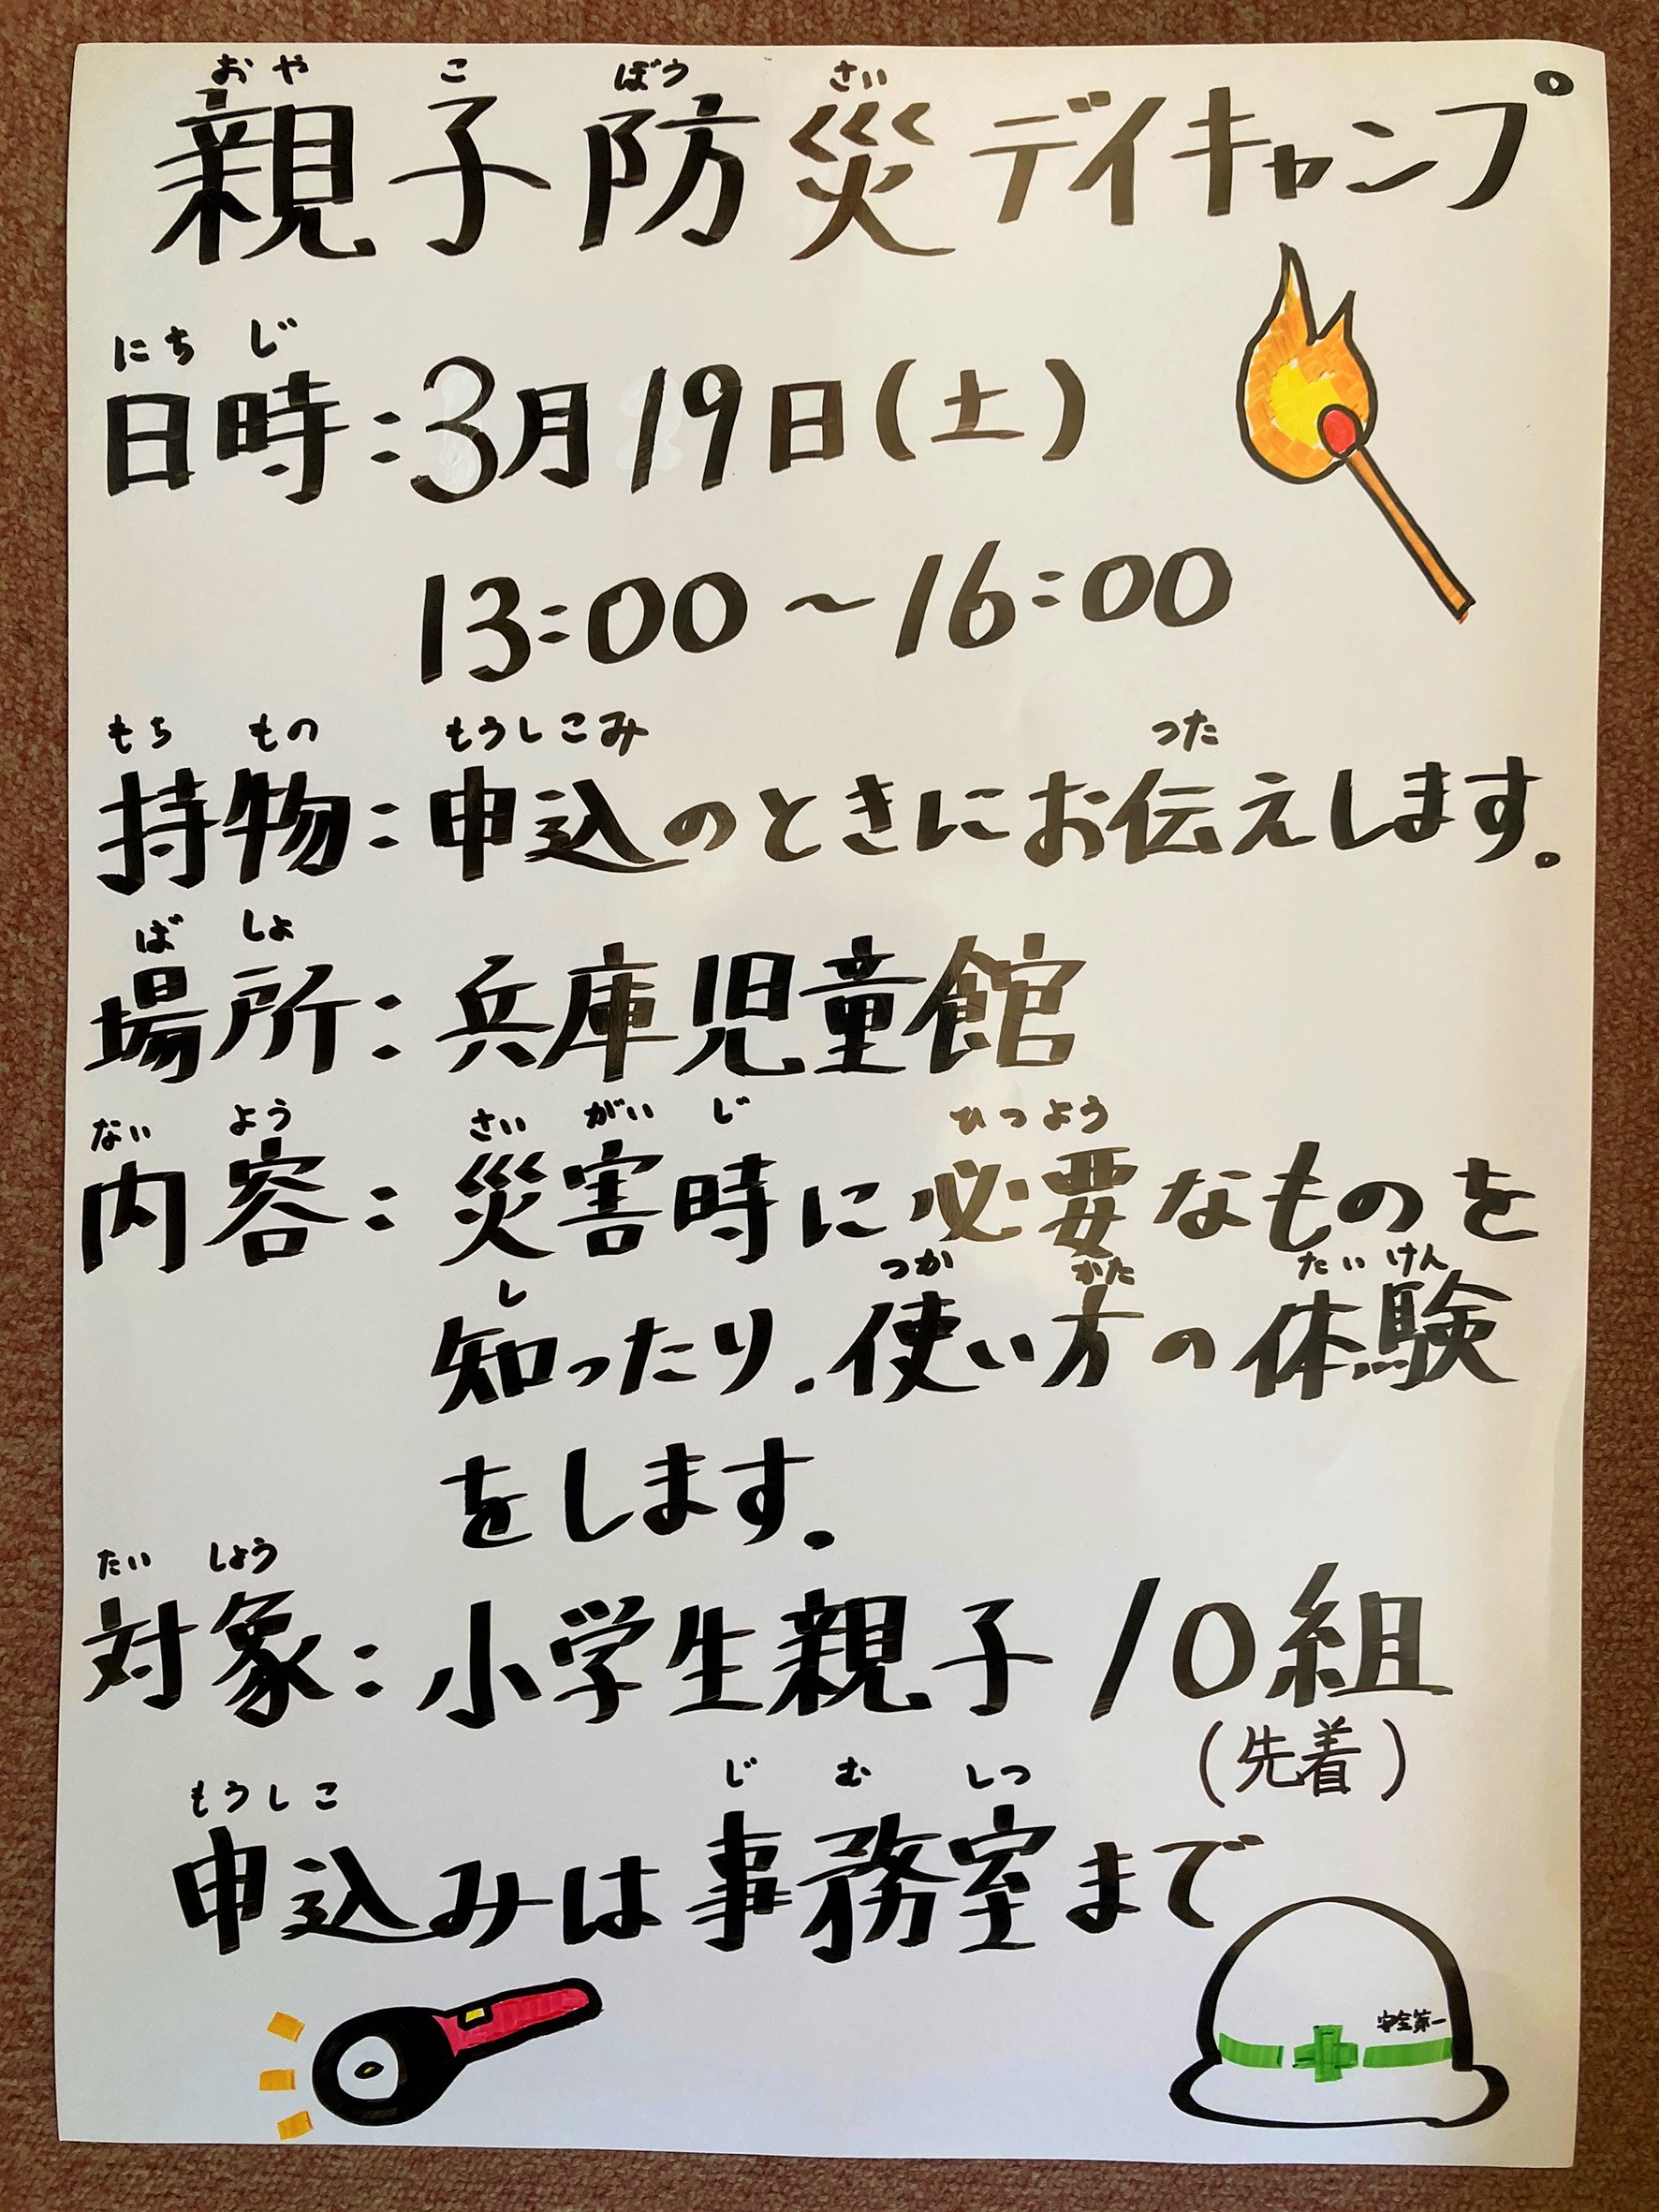 おや こ ぼう さい
親子防災デイキャンプ
にち じ
日時：3月19日(土)
13:00～16:00
もち もの もうしこみ つた
持物：申込のときにお伝えします。
ば しょ
場所：兵庫児童館
ない よう さい がい じ ひつよう
内容：災害時に必要なものを
し つか かた たいけん
知ったり、使い方の体験
をします。
たい しょう
対象：小学生親子10組
(先着)
もうしこ じ む しつ
申込みは事務室まで
安全第一